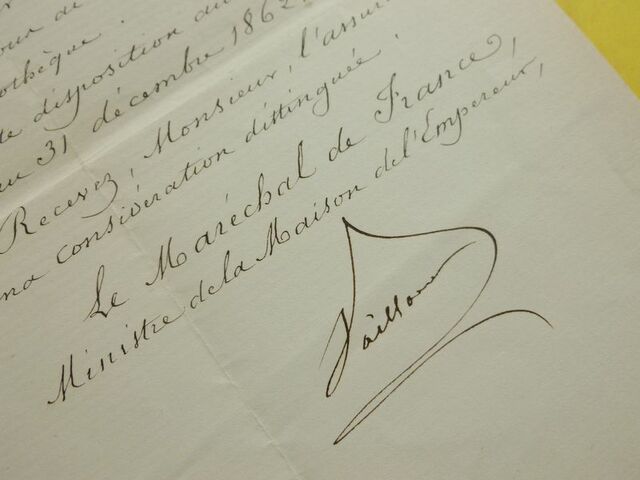 our de
othèque.
de disposition du
au 31 décembre 1862.
Recevez, Monsieur, l'assur
ma considération distinguée.
Le Maréchal de France,
Ministre de la Maison de l'Empereur,
Vaillant